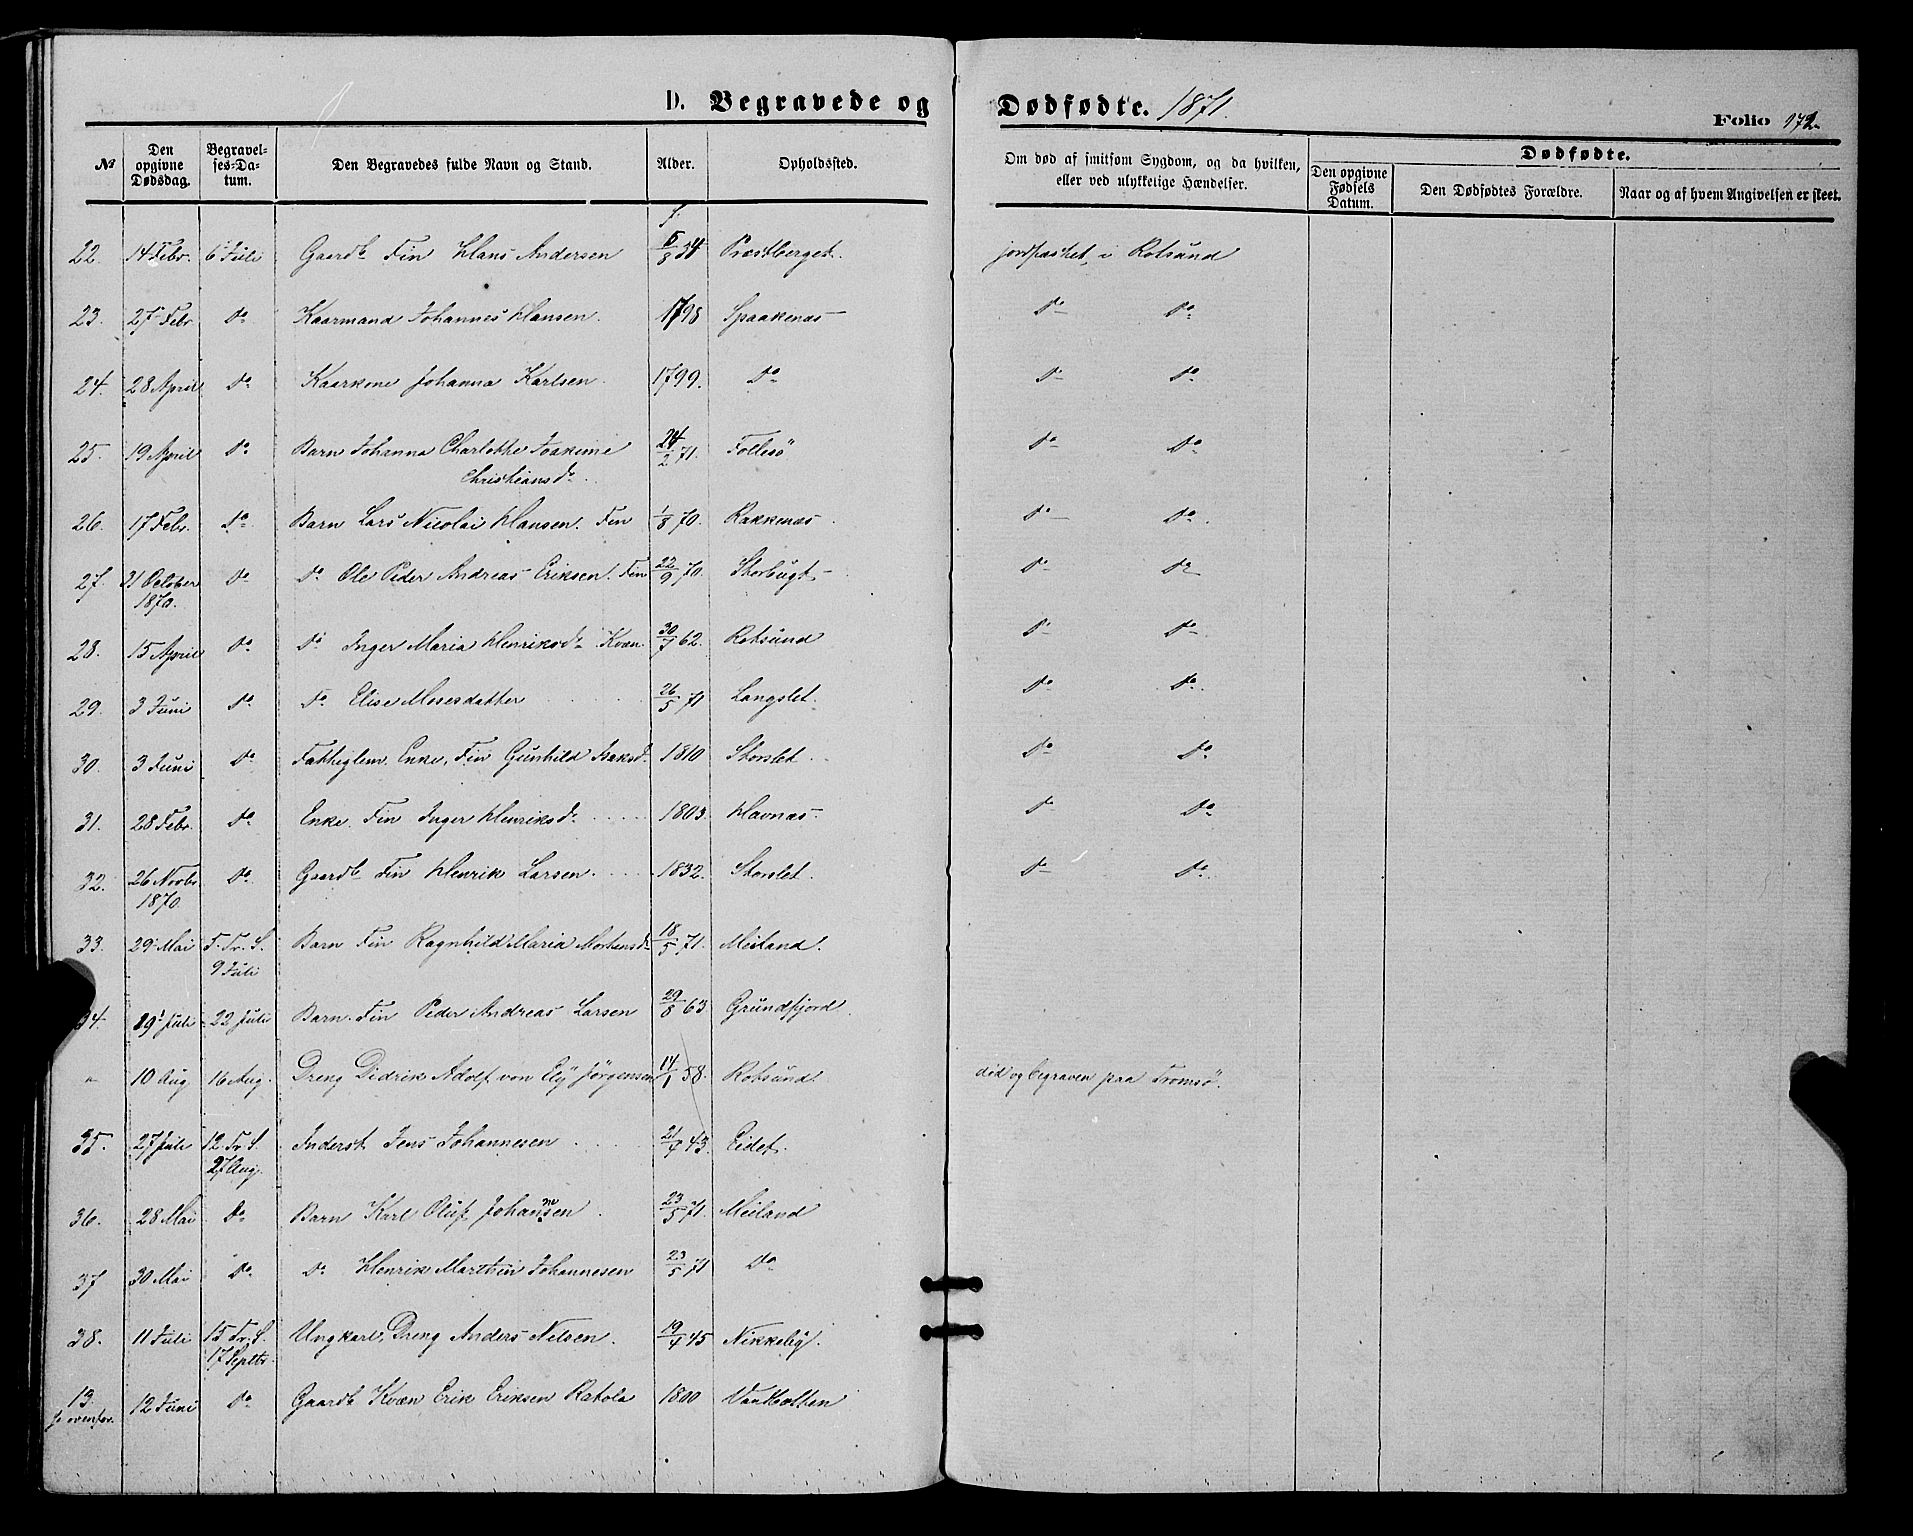 D. Begravede og Dødfødte. 1871.
Folio 172.
№ Den opgivne Dødsdag. Begravelses-Datum. Den Begravedes fulde Navn og Stand. Alder. Opholdssted. Om død af smitsom Sygdom, og da hvilken, eller ved ulykkelige Hændelser. Dødfødte.
Den opgivne Fødsels Datum. Den Dødfødtes Forældre. Naar og af hvem Angivelsen er skeet.
f.
22. 14 Febr. 6 Juli Gaardb Fin Hans Andersen 5/8 34 Præstberget. jordpaakset i Rotsund
23. 27 Febr do Kaarmand Johannes Hansen. 1798 Spaakenæs do do
24. 28 April do Kaarkone Johanna Karlsen 1799. do do do
25. 19 April do Barn Johanna Charlotthe Joakime 24/2 71. Follesö do do
Christiansd.
26. 17 Febr. do Barn Lars Nicolai Hansen. Fin 1/8 70. Rakkenæs do do
27. 31 October do do Ole Peder Andreas Eriksen. Fin 22/9 70. Storbugt do do
1870.
28. 15 April do do Inger Maria Henriksd. Kvæn 30/7 62. Rotsund do do
29. 3 Juni do do Elise Mosesdatter 26/5 71 Langslet. do do
30. 3 Juni do Fattiglem. Enke, Fin Gunhild Isaksd. 1810 Storslet do do
31. 28 Febr. do Enke. Fin Inger Henriksd. 1803. Havnæs do do
32. 26 Novbr do Gaardb Fin Henrik Larsen. 1832. Storslet. do do
1870.
33. 29 Mai 5. Tr. S. Barn Fin Ragnhild Maria Mortensd 18/5 71. Meiland.
9 Juli
34. 19 Juli 22 Juli Barn. Fin Peder Andreas Larsen 29/8 63 Grundfjord
" 10 Aug 16 Aug. Dreng Didrik Adolf von Ely Jörgensen 14/1 58. Rotsund. död og begraven paa Tromsö.
35. 27 Juli 12. Tr. S. Inderst Jens Johannesen 21/4 43. Eidet.
27 Aug.
36. 28 Mai do Barn Karl Oluf Johannesen 23/5 71. Meiland
37 30 Mai do do Henrik Marthin Johannesen 23/5 71 do
38. 11 Juli 15 Tr. S. Ungkarl, Dreng Anders Nilsen. 19/4 45 Nikkeby.
17 Septbr.
13. 12 Juni do Gaardb Kvæn Erik Eriksen Ratola 1800 Vanholten